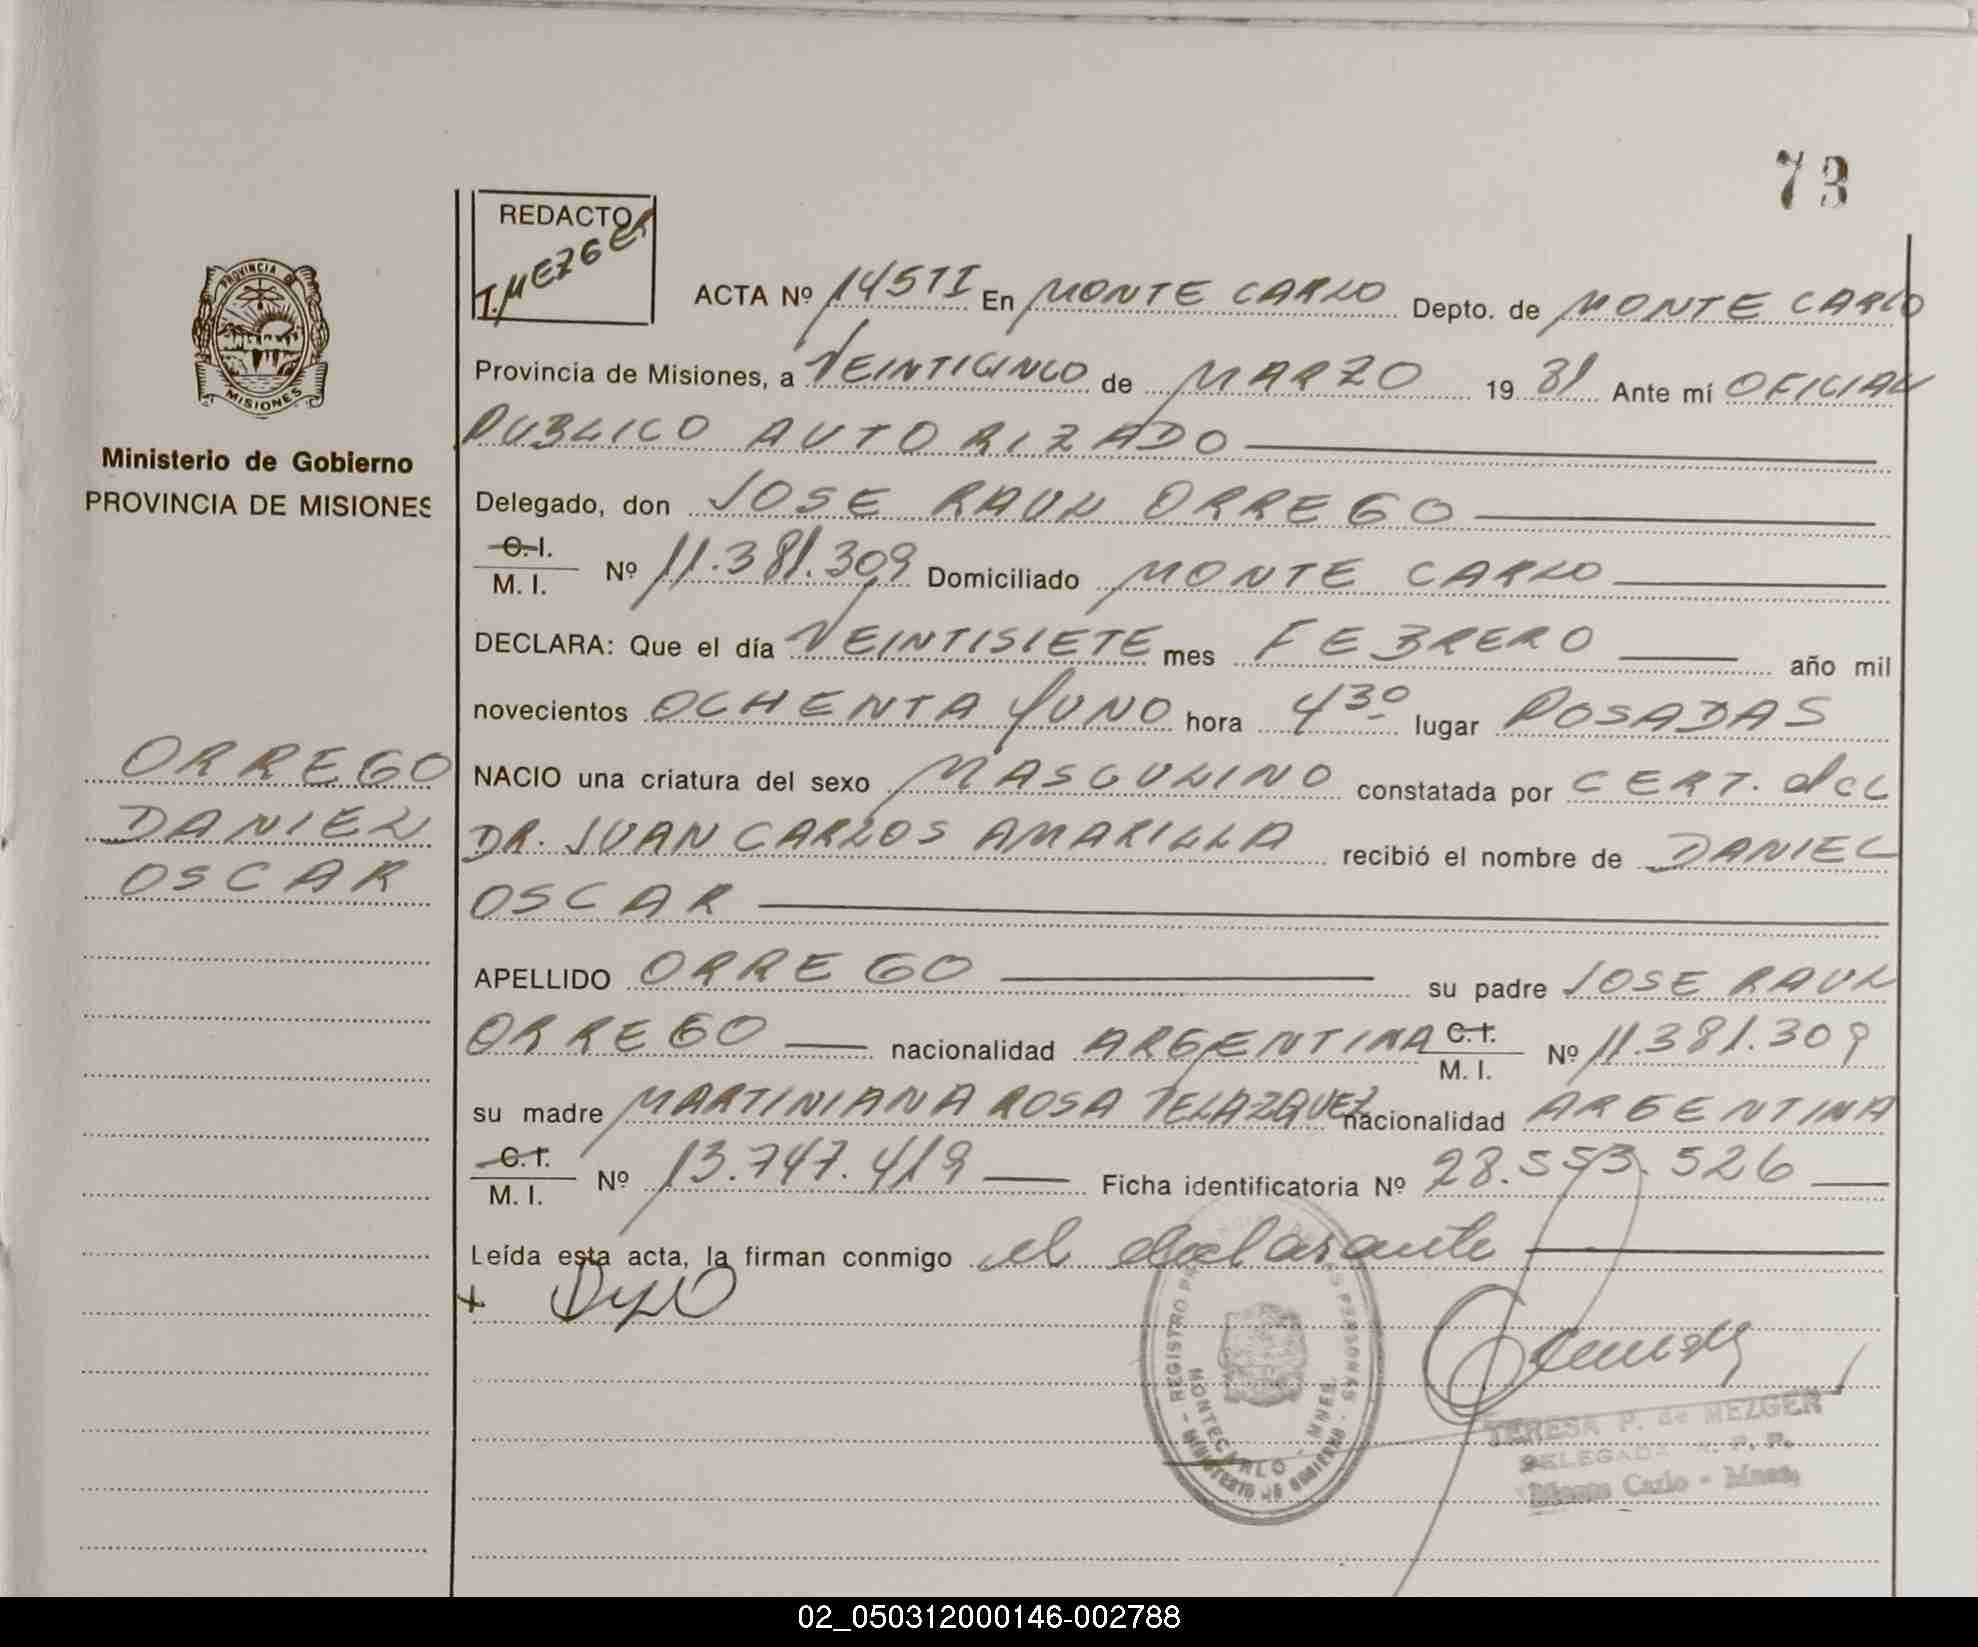 73
REDACTO
T. MEZGER
ACTA Nº 145TI En MONTE CARLO Depto. de MONTE CARLO
Provincia de Misiones, a VEINTICINCO de MARZO 19 81 Ante mí OFICIAL
PUBLICO AUTORIZADO
Delegado, don JOSE RAUL ORREGO
C. I.
M. I. Nº 11.381.309 Domiciliado MONTE CARLO
DECLARA: Que el día VEINTISIETE mes FEBRERO año mil
novecientos OCHENTA Y UNO hora 4 30 lugar POSADAS
NACIO una criatura del sexo MASCULINO constatada por CERT. del
DR. JUAN CARLOS AMARILLA recibió el nombre de DANIEL
OSCAR
APELLIDO ORREGO su padre JOSE RAUL
ORREGO nacionalidad ARGENTINA C. I. M. I. Nº 11.381.309
su madre MARTINIANA ROSA VELAZQUEZ nacionalidad ARGENTINA
C. I.
M. I. Nº 13.747.419 Ficha identificatoria Nº 28.553.526
Leída esta acta, la firman conmigo el declarante
PROVINCIA DE
MISIONES
Ministerio de Gobierno
PROVINCIA DE MISIONES
ORREGO
DANIEL
OSCAR
REGISTRO PERSONAS
MONTECARLO - MNES.
MINISTERIO DE GOBIERNO
TERESA P. de MEZGER
DELEGADA R. P. P.
Monte Carlo - Mnes.
02_050312000146-002788